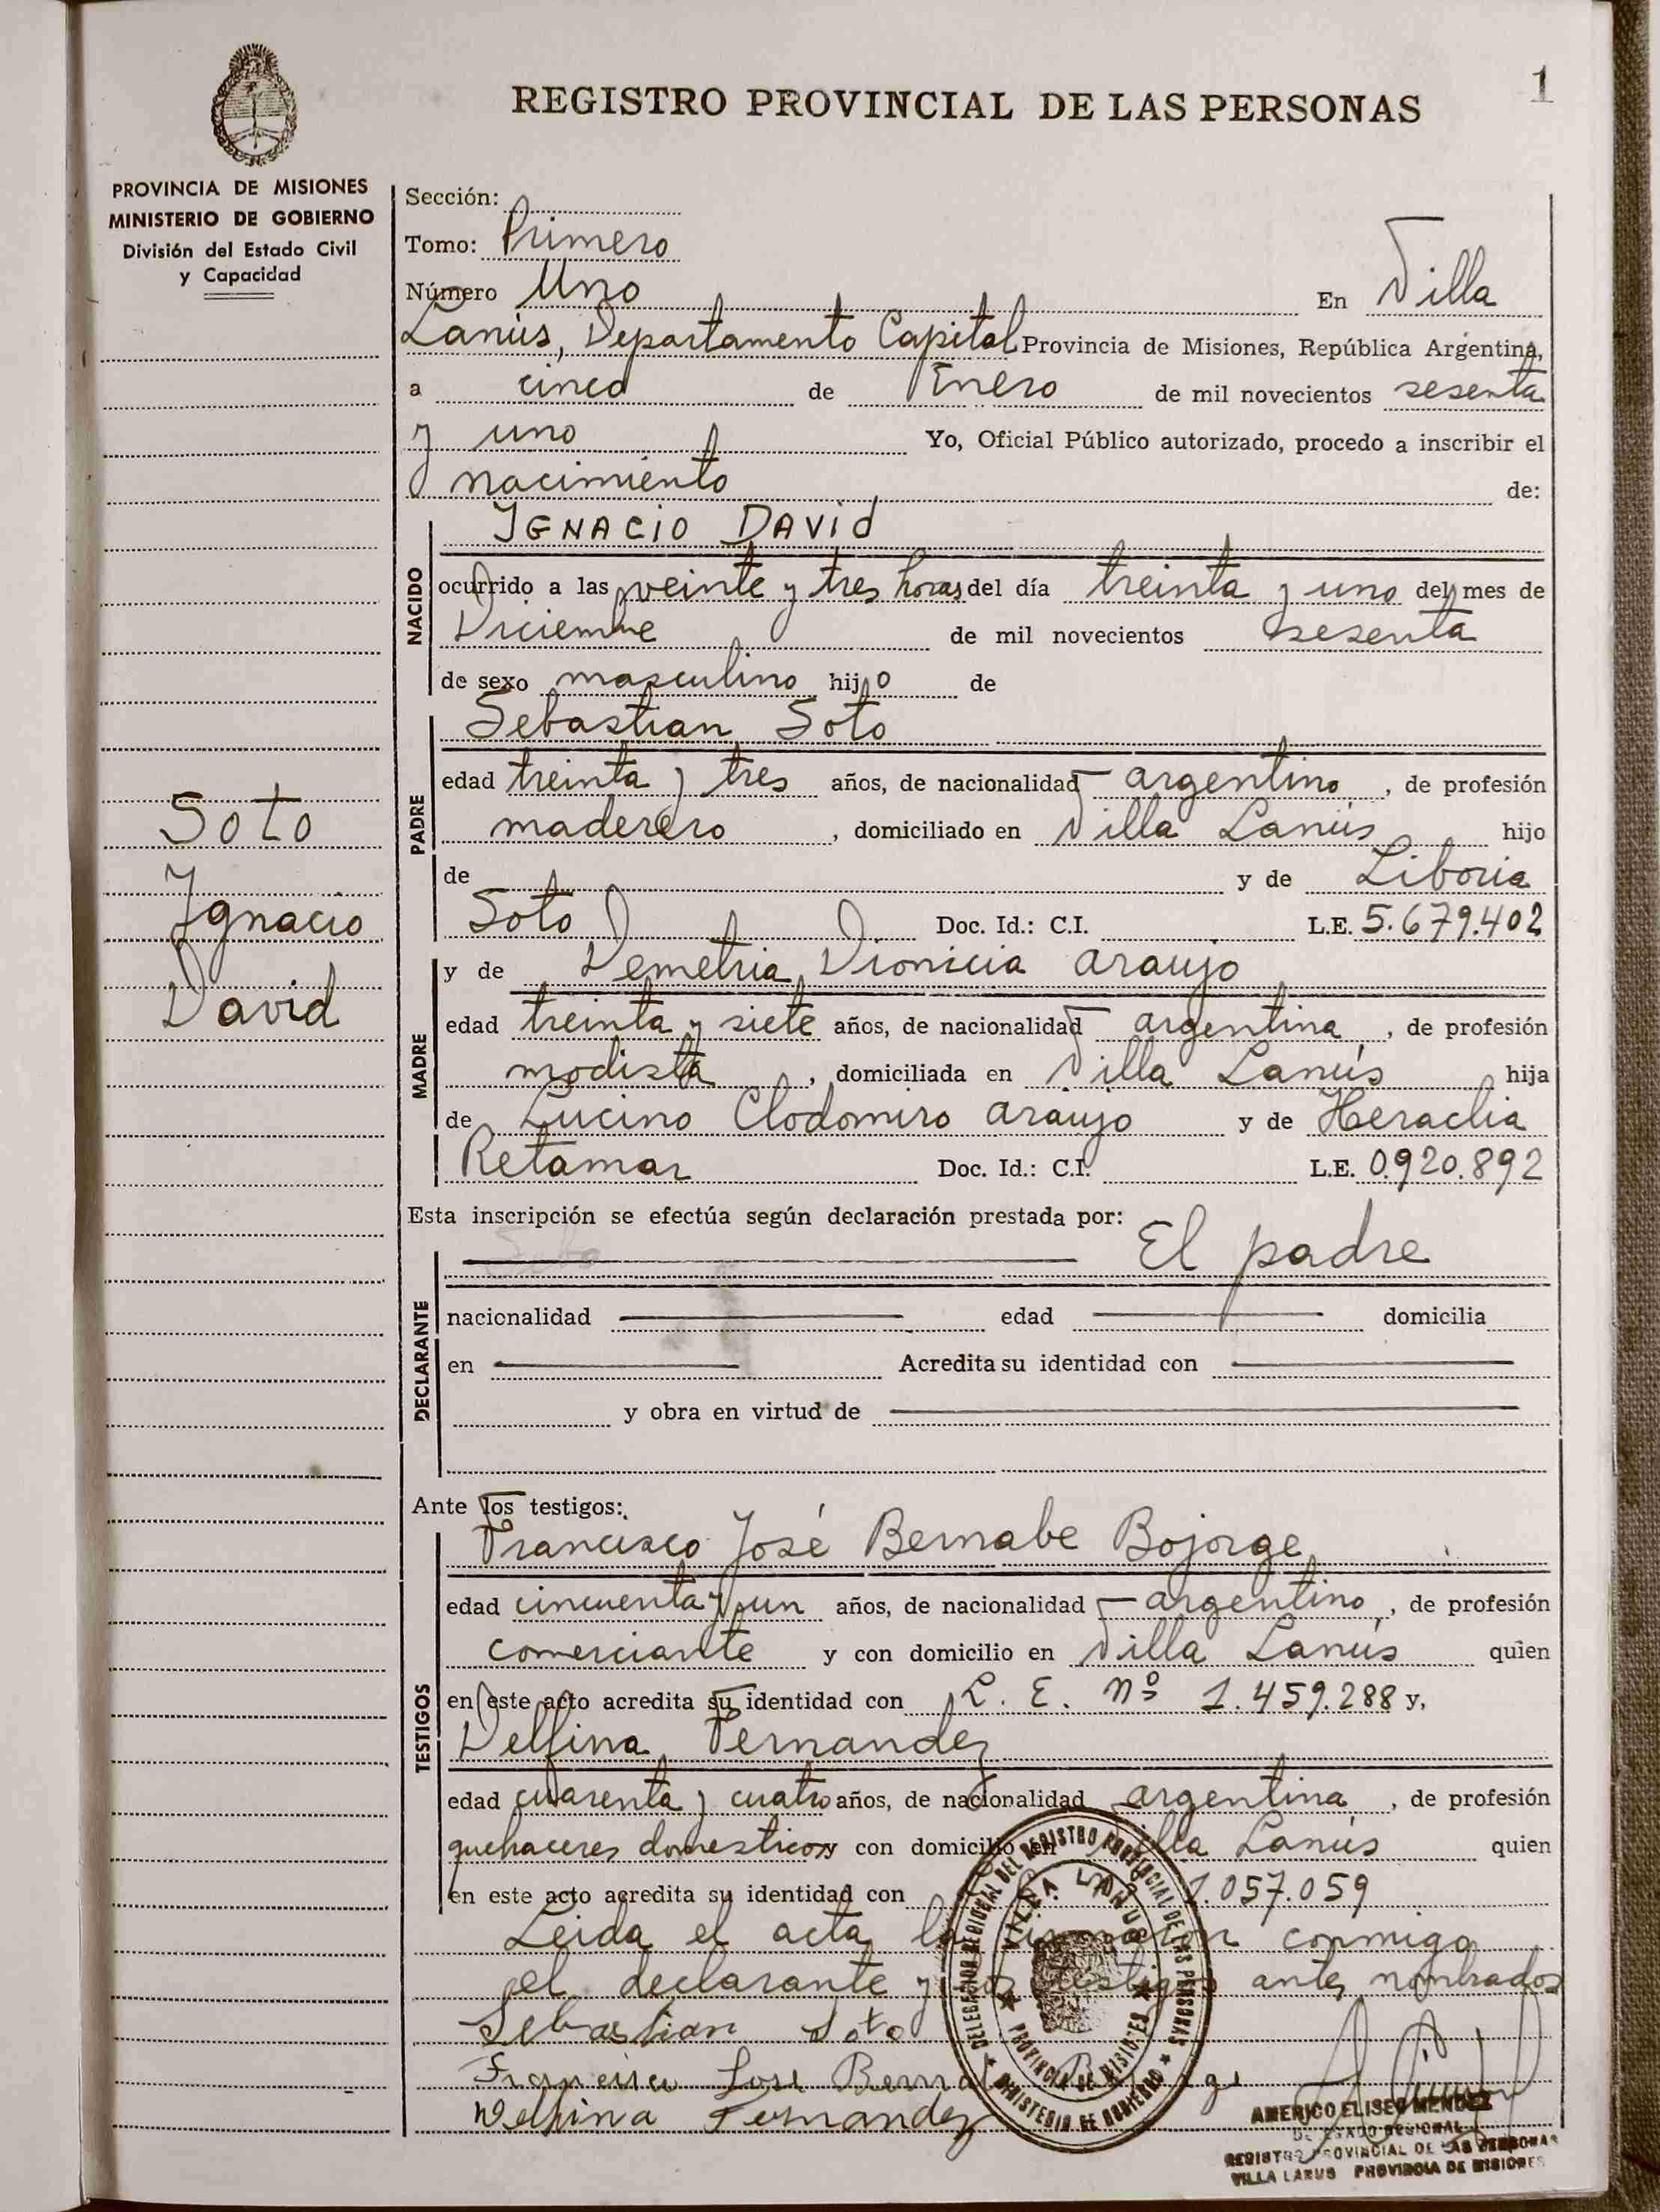 1
REGISTRO PROVINCIAL DE LAS PERSONAS
PROVINCIA DE MISIONES
MINISTERIO DE GOBIERNO
División del Estado Civil
y Capacidad
Soto
Ignacio
David
Sección:
Tomo: Primero
Número Uno En Villa
Lanús, Departamento Capital Provincia de Misiones, República Argentina,
a cinco de Enero de mil novecientos sesenta
y uno Yo, Oficial Público autorizado, procedo a inscribir el
nacimiento de:
NACIDO
IGNACIO DAVID
ocurrido a las veinte y tres horas del día treinta y uno del mes de
Diciembre de mil novecientos sesenta
de sexo masculino hijo de
PADRE
Sebastian Soto
edad treinta y tres años, de nacionalidad argentino, de profesión
maderero, domiciliado en Villa Lanús hijo
de y de Liboria
Soto Doc. Id.: C.I. L.E. 5.679.402
MADRE
y de Demetria Dionicia Araujo
edad treinta y siete años, de nacionalidad argentina, de profesión
modista, domiciliada en Villa Lanús hija
de Lucino Clodomiro Araujo y de Heraclia
Retamar Doc. Id.: C.I. L.E. 0.920.892
Esta inscripción se efectúa según declaración prestada por:
El padre
DECLARANTE
nacionalidad edad domicilia
en Acredita su identidad con
y obra en virtud de
Ante los testigos:
TESTIGOS
Francisco José Bernabe Bojorge
edad cincuenta y un años, de nacionalidad argentino, de profesión
comerciante y con domicilio en Villa Lanús quien
en este acto acredita su identidad con L. E. Nº 1.459.288 y,
Delfina Fernandez
edad cuarenta y cuatro años, de nacionalidad argentina, de profesión
quehaceres domesticos y con domicilio en Villa Lanús quien
en este acto acredita su identidad con 1.057.059
Leida el acta la firmaron conmigo
el declarante y los testigos antes nombrados
Sebastian Soto
Francisco Jose Bernabe Bojorge
Delfina Fernandez
DELEGACION REGIONAL DEL REGISTRO PROVINCIAL DE LAS PERSONAS
VILLA LANUS
PROVINCIA DE MISIONES
MINISTERIO DE GOBIERNO
AMERICO ELISEO MENDEZ
DELEGADO REGIONAL
REGISTRO PROVINCIAL DE LAS PERSONAS
VILLA LANUS PROVINCIA DE MISIONES